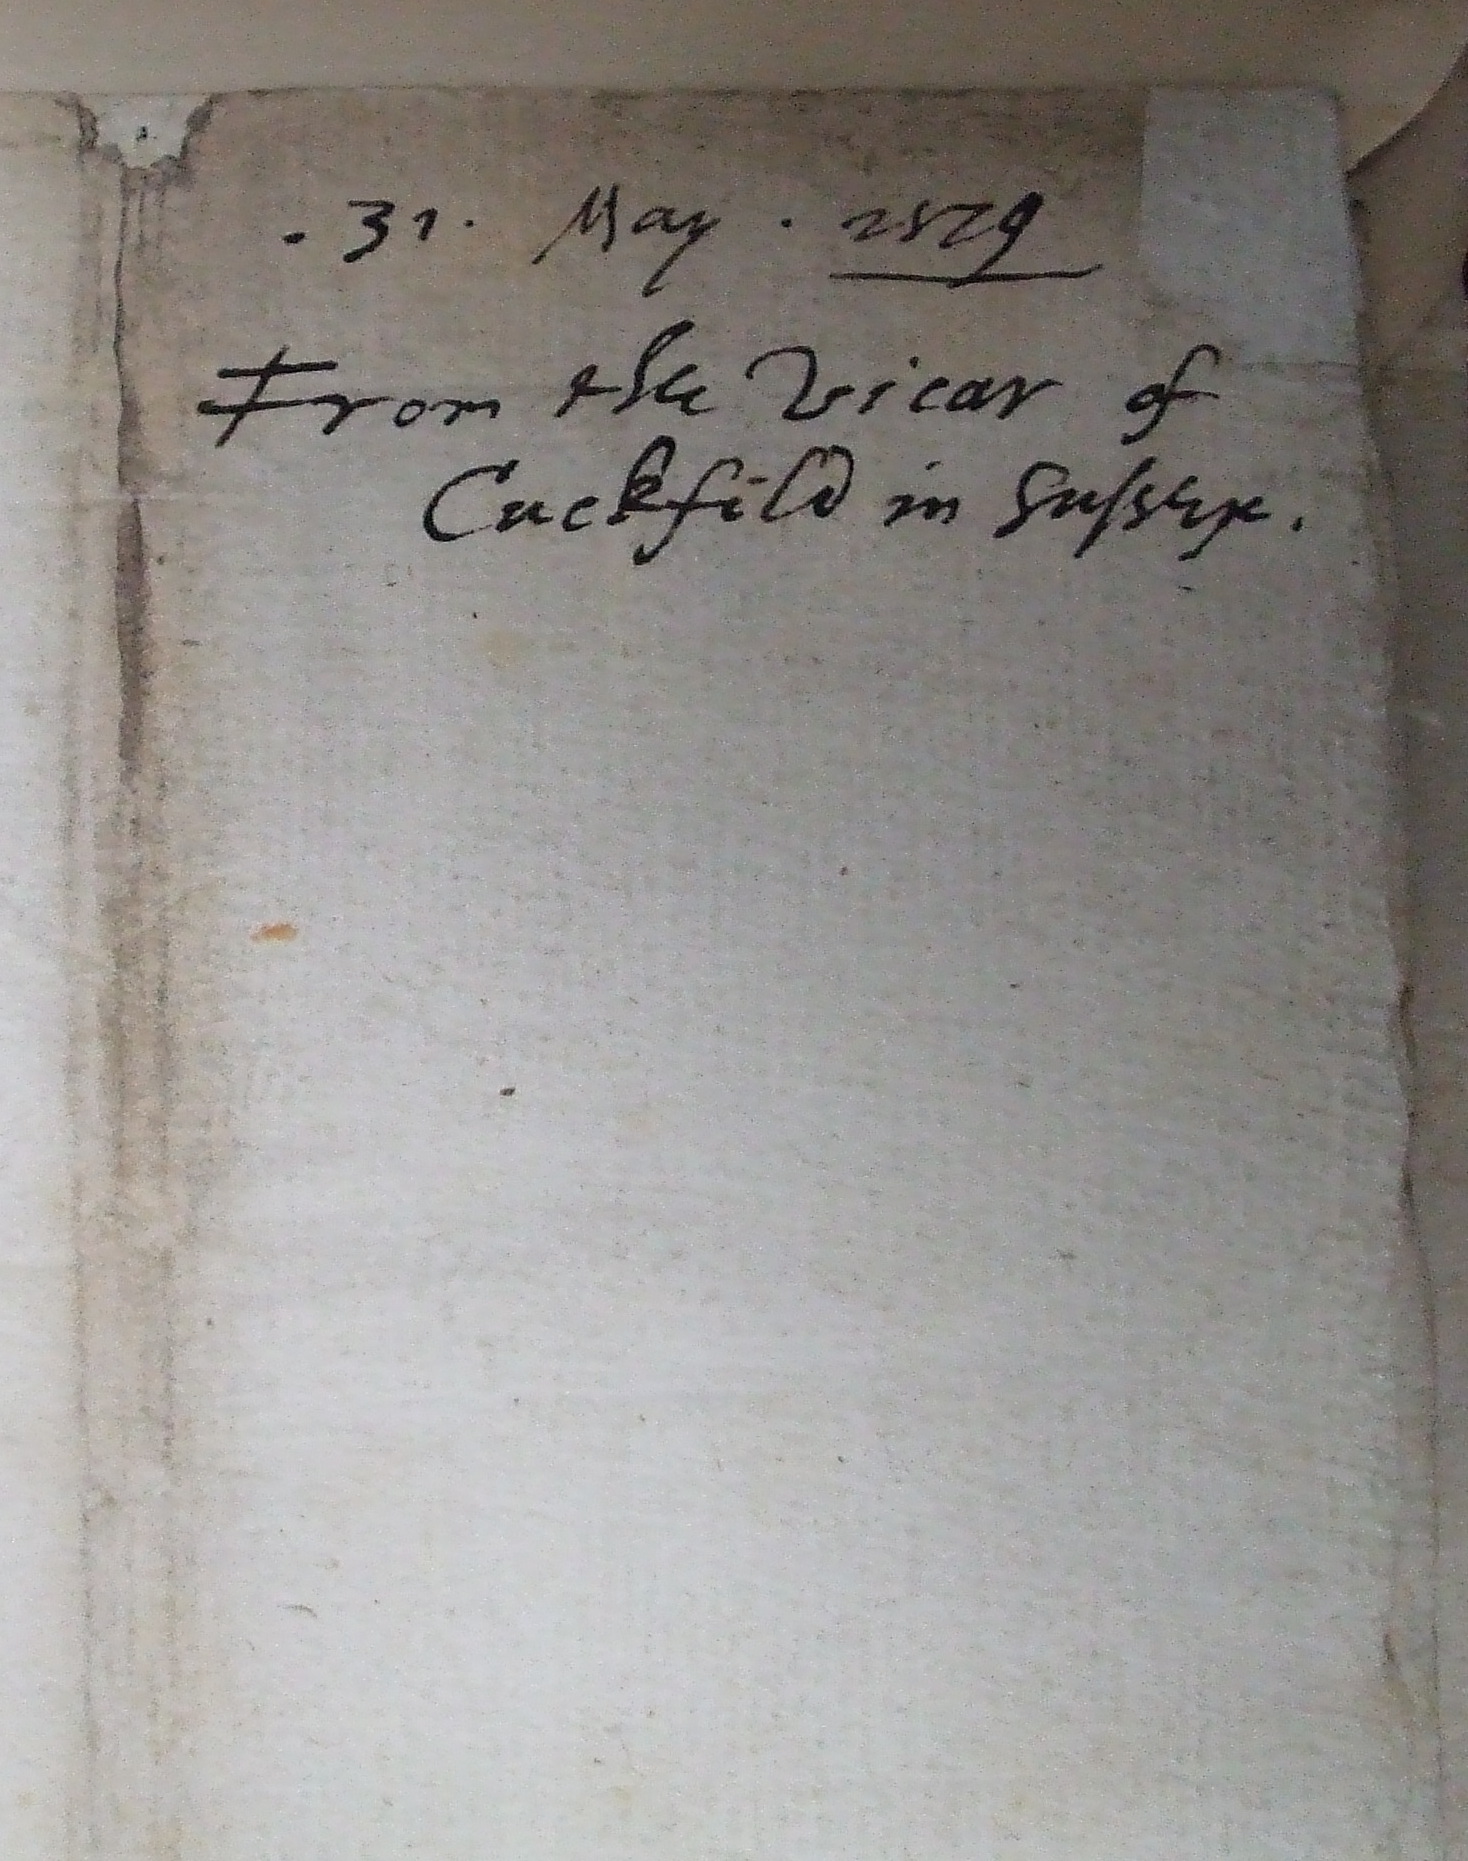 . 31. May . 1579
From the Vicar of
Cuckfild in Sussex.